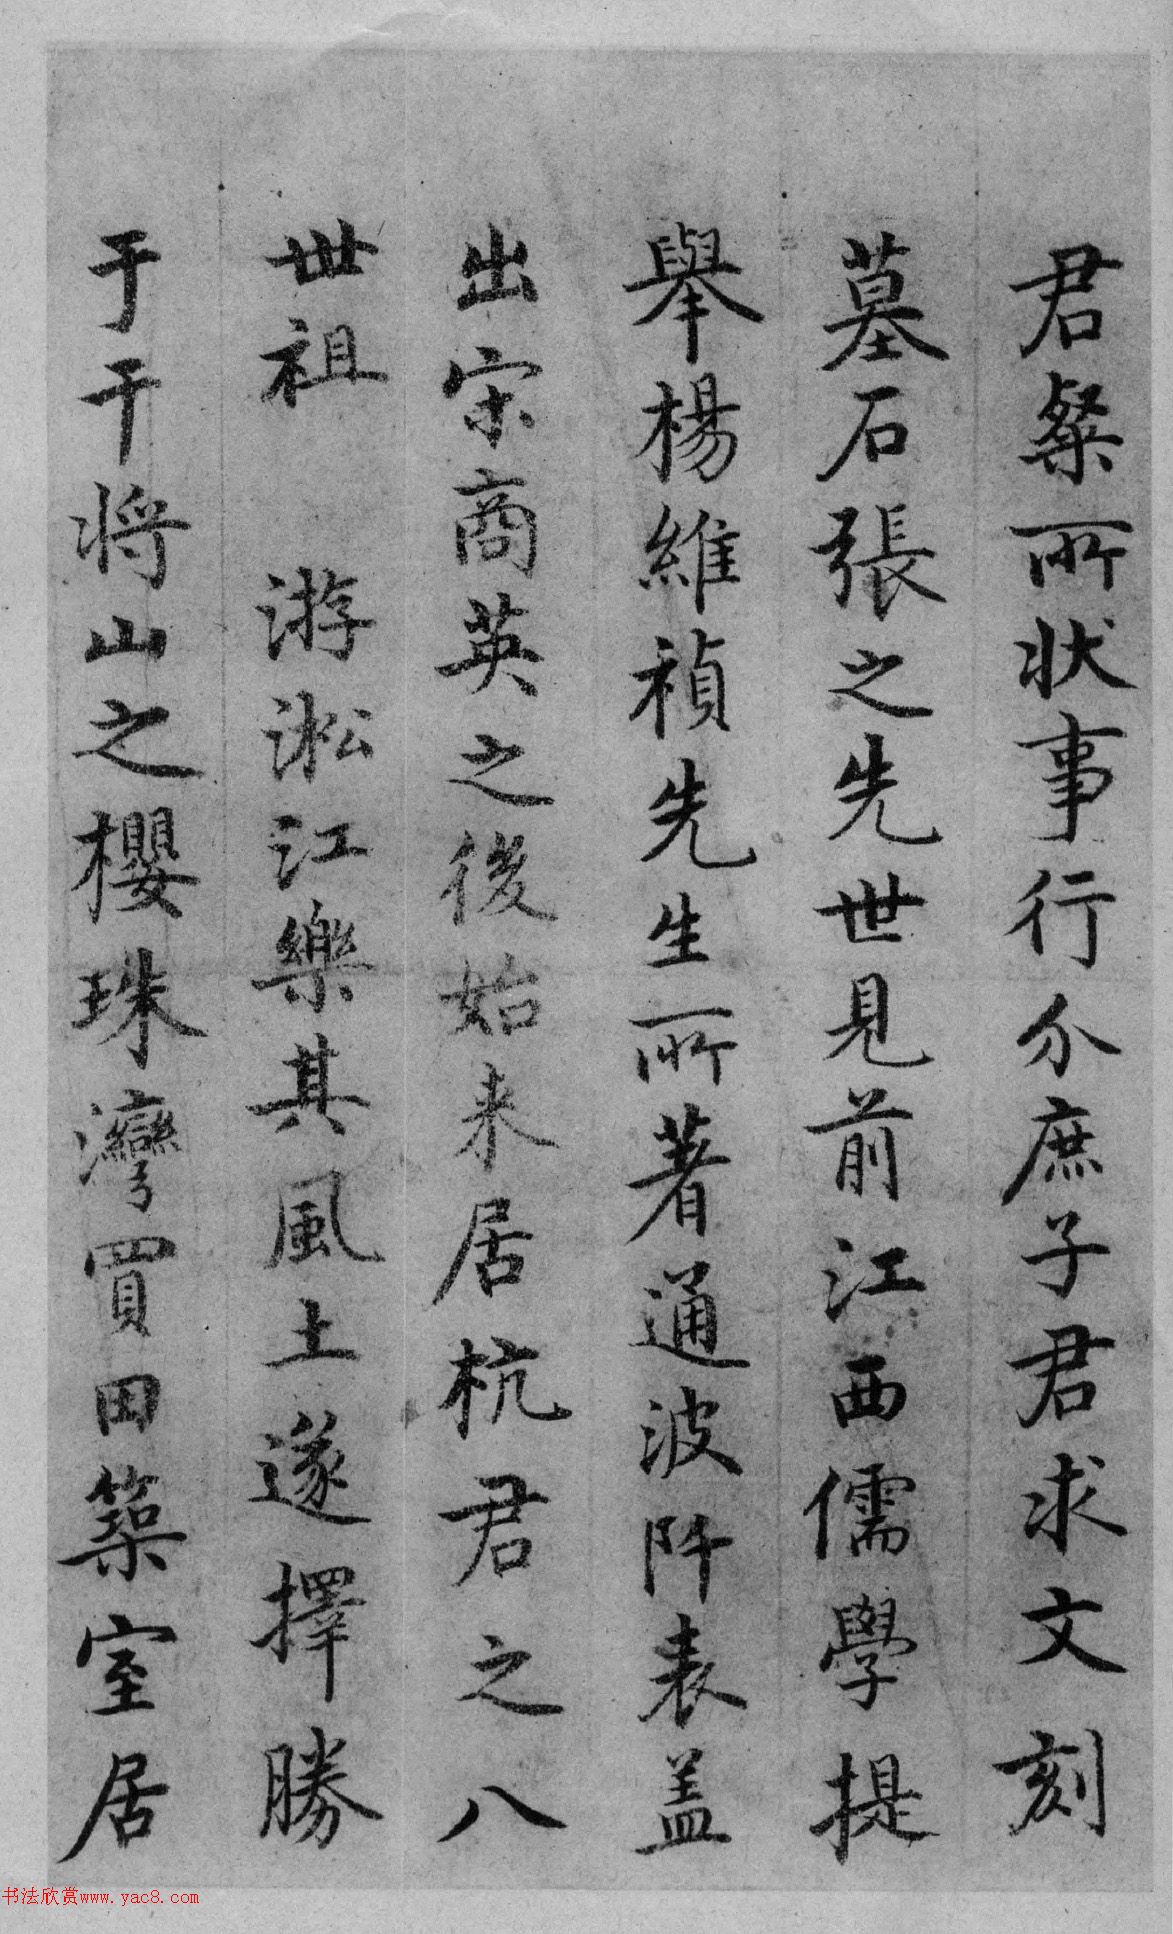 君粲所状事行介庶子君求文刻
墓石張之先世見前江西儒學提
舉楊維禎先生所著通波阡表盖
出宋商英之後始来居杭君之八
世祖 游淞江樂其風土遂擇勝
于干将山之櫻珠灣買田築室居
书法欣赏www.yac8.com